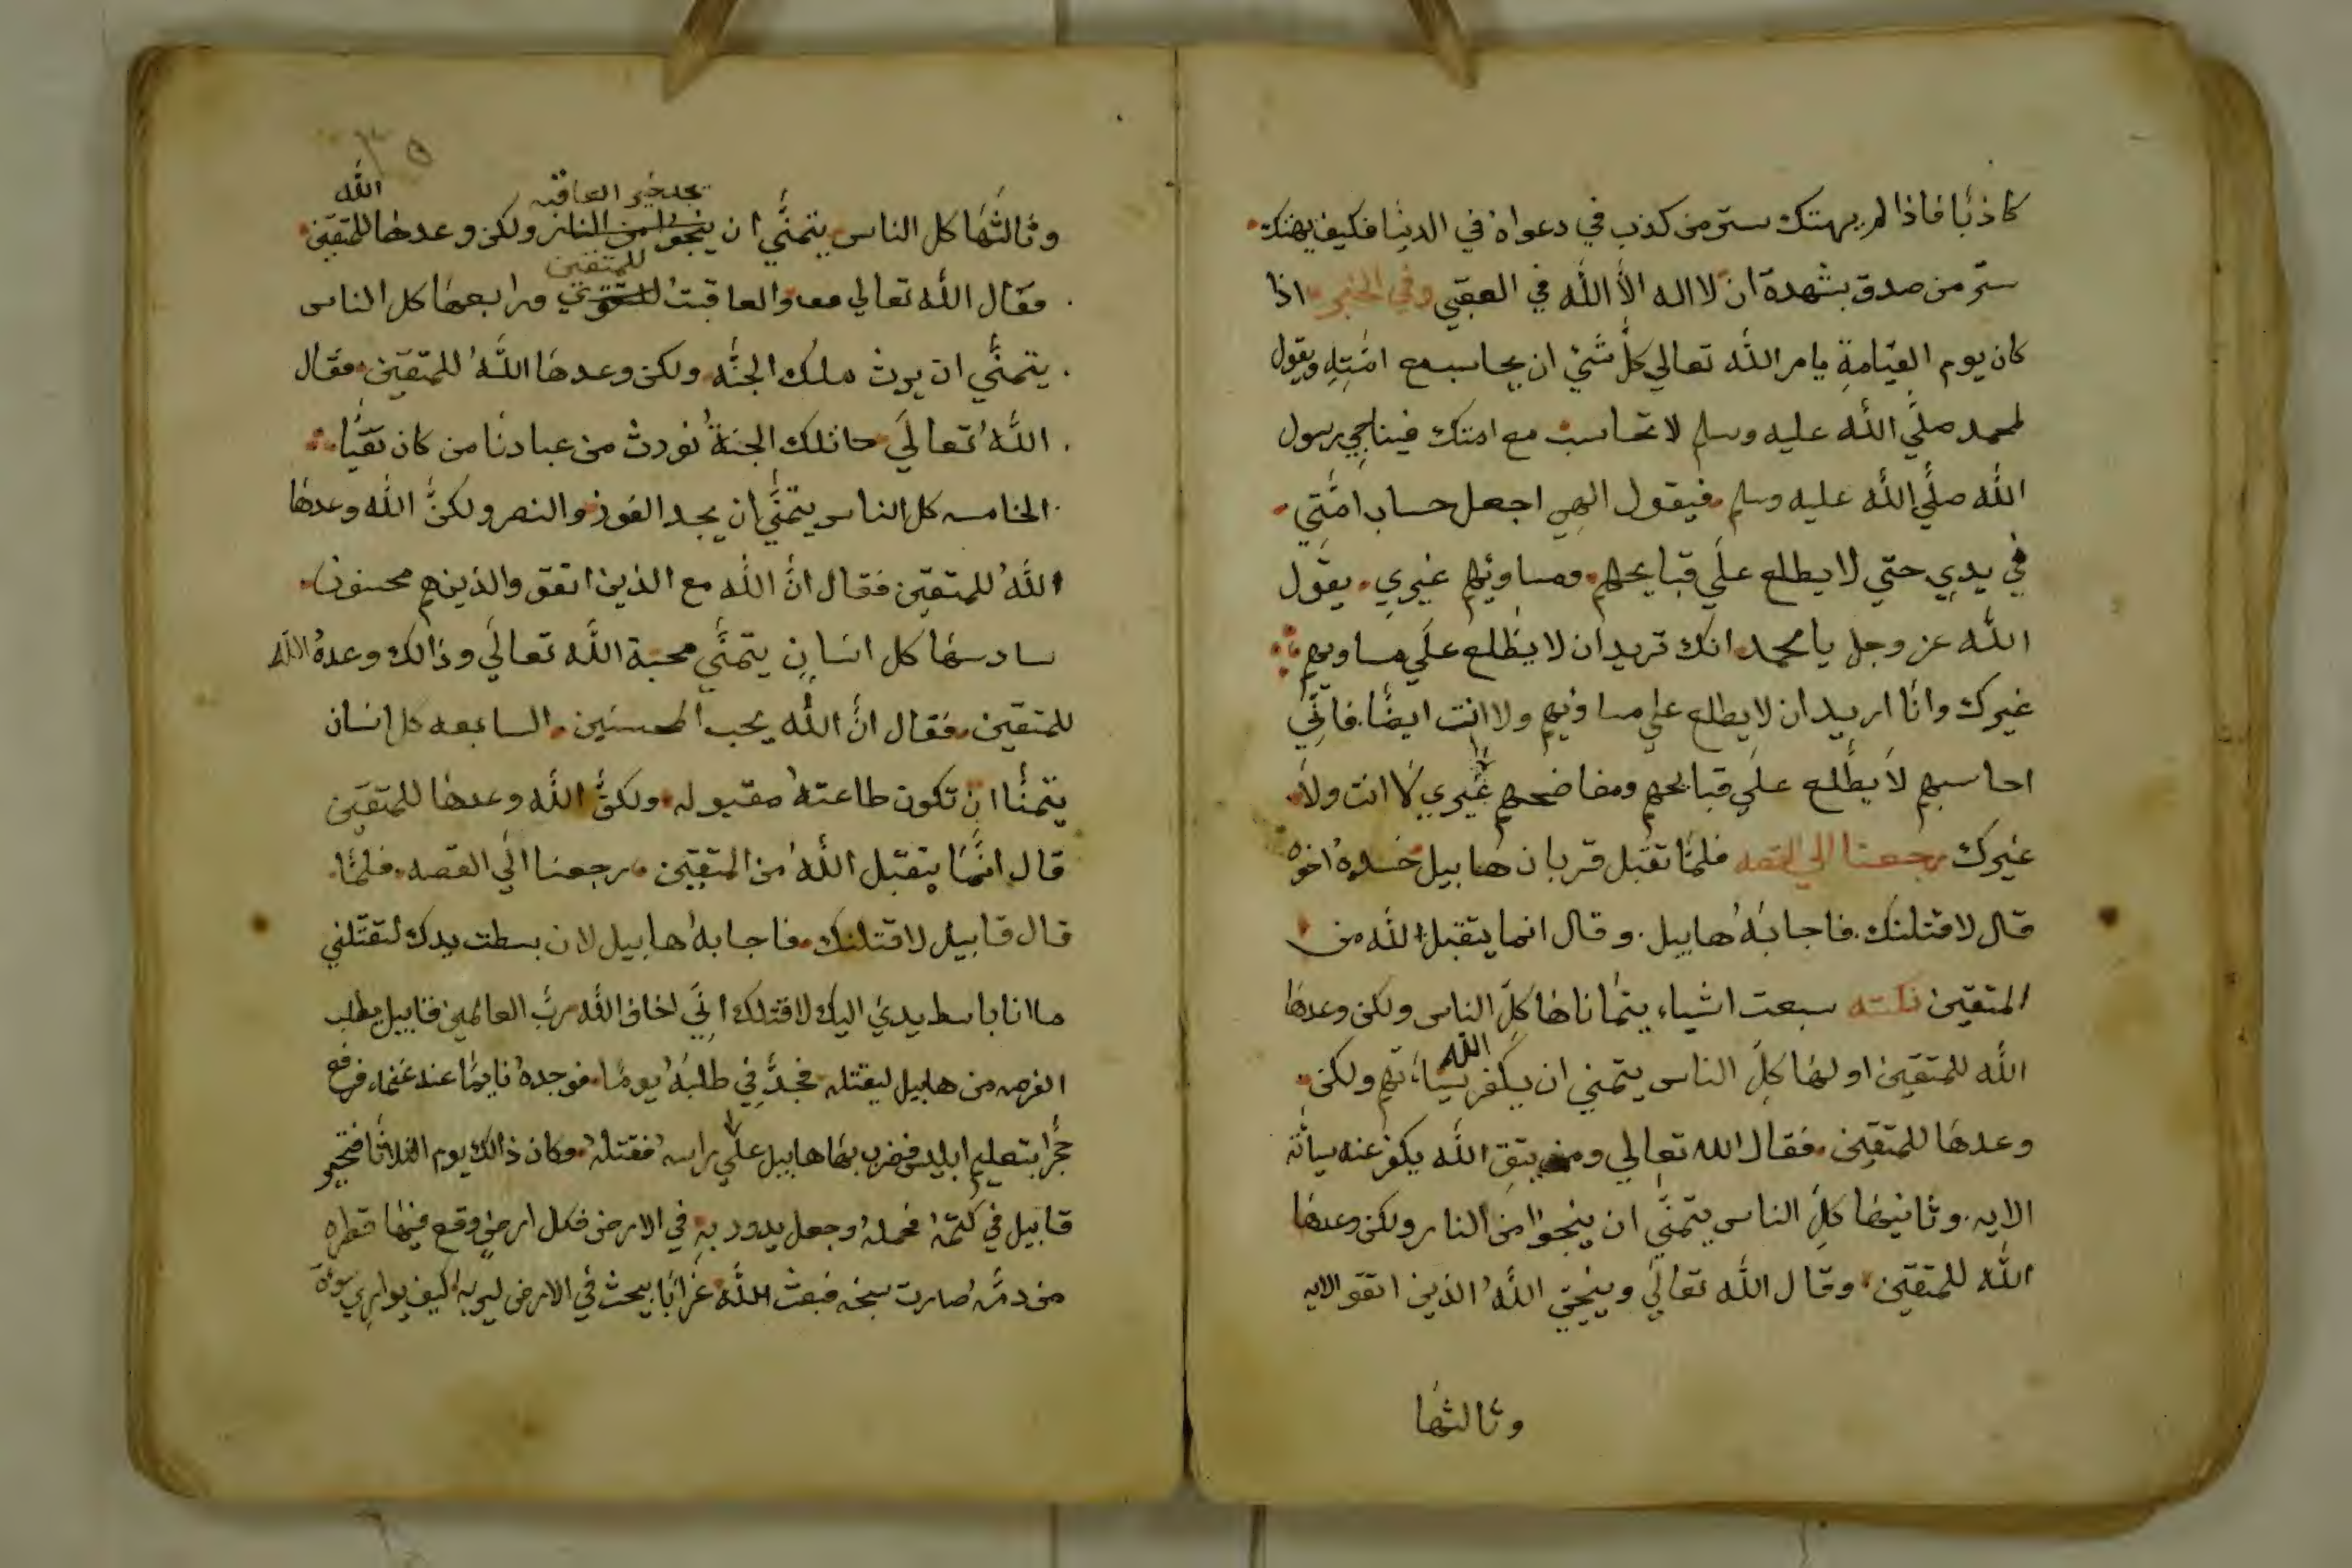 كاذبًا فاذا لم يهتك ستر من كذب في دعواه في الدنيا فكيف يهتك
ستر من صدق بشهدة ان لا اله الا الله في العقبي وفي الخبر اذا
كان يوم القيامة يامر الله تعالي كل شئ ان يحاسب مع امته ويقول
لمحمد صلي الله عليه وسلم لا تحاسب مع امتك فيناجي رسول
الله صلي الله عليه وسلم فيقول الهي اجعل حساب امتي
في يدي حتي لا يطلع علي قبايحهم ومساوئهم غيري يقول
الله عز وجل يا محمد انك تريد ان لا يطلع علي مساويهم
غيرك وانا اريد ان لا يطلع علي مساوئهم ولا انت ايضا فاني
احاسبهم لا يطلع علي قبايحهم ومفاضحهم غيري لا انت ولا
غيرك رجعنا الي القصه فلما تقبل قربان هابيل حسده اخوه
قال لاقتلنك فاجابه هابيل وقال انما يتقبل الله من
المتقين نكته سبعت اشياء يتماناها كل الناس ولكن وعدها
الله للمتقين اولها كل الناس يتمني ان يكفر الله سياتهم ولكن
وعدها للمتقين فقال الله تعالي ومن يتق الله يكفر عنه سيأته
الايه وثانيها كل الناس يتمني ان ينجوا من النار ولكن وعدها
الله للمتقين وقال الله تعالي وينجي الله الذين اتقو الايه
وثالثها
٣٥
وثالثها كل الناس يتمني ان يجد خير العاقبه ولكن وعدها الله للمتقين
فقال الله تعالي والعاقبت للمتقين ورابعها كل الناس
يتمني ان يرث ملك الجنه ولكن وعدها الله للمتقين فقال
الله تعالي تلك الجنة نورث من عبادنا من كان تقيا
الخامسه كل الناس يتمني ان يجد الفوز والنصر ولكن الله وعدها
الله للمتقين فقال ان الله مع الذين اتقو والذين هم محسنون
سادسها كل انسان يتمني محبة الله تعالي وذالك وعده الله
للمتقين فقال ان الله يحب المحسنين السابعه كل انسان
يتمنا ان تكون طاعته مقبوله ولكن الله وعدها للمتقين
قال انما يتقبل الله من المتقين رجعنا الي القصه فلما
قال قابيل لاقتلنك فاجابه هابيل لان بسطت يدك لتقتلني
ما انا باسط يدي اليك لاقتلك اني اخاف الله رب العالمين فقابيل يطلب
الفرصه من هابيل ليقتله فجد في طلبه يوما فوجده نايما عند غنمه فرفع
حجرا بتعليم ابليس فضرب بها هابيل علي راسه فقتله وكان ذالك يوم الثلاثا فتحير
قابيل في كتمه فحمله وجعل يدور به في الارض فكل ارض وقع فيها قطره
من دمه صارت سبخه فبعث الله غرابا يبحث في الارض ليريه كيف يواري سوءة